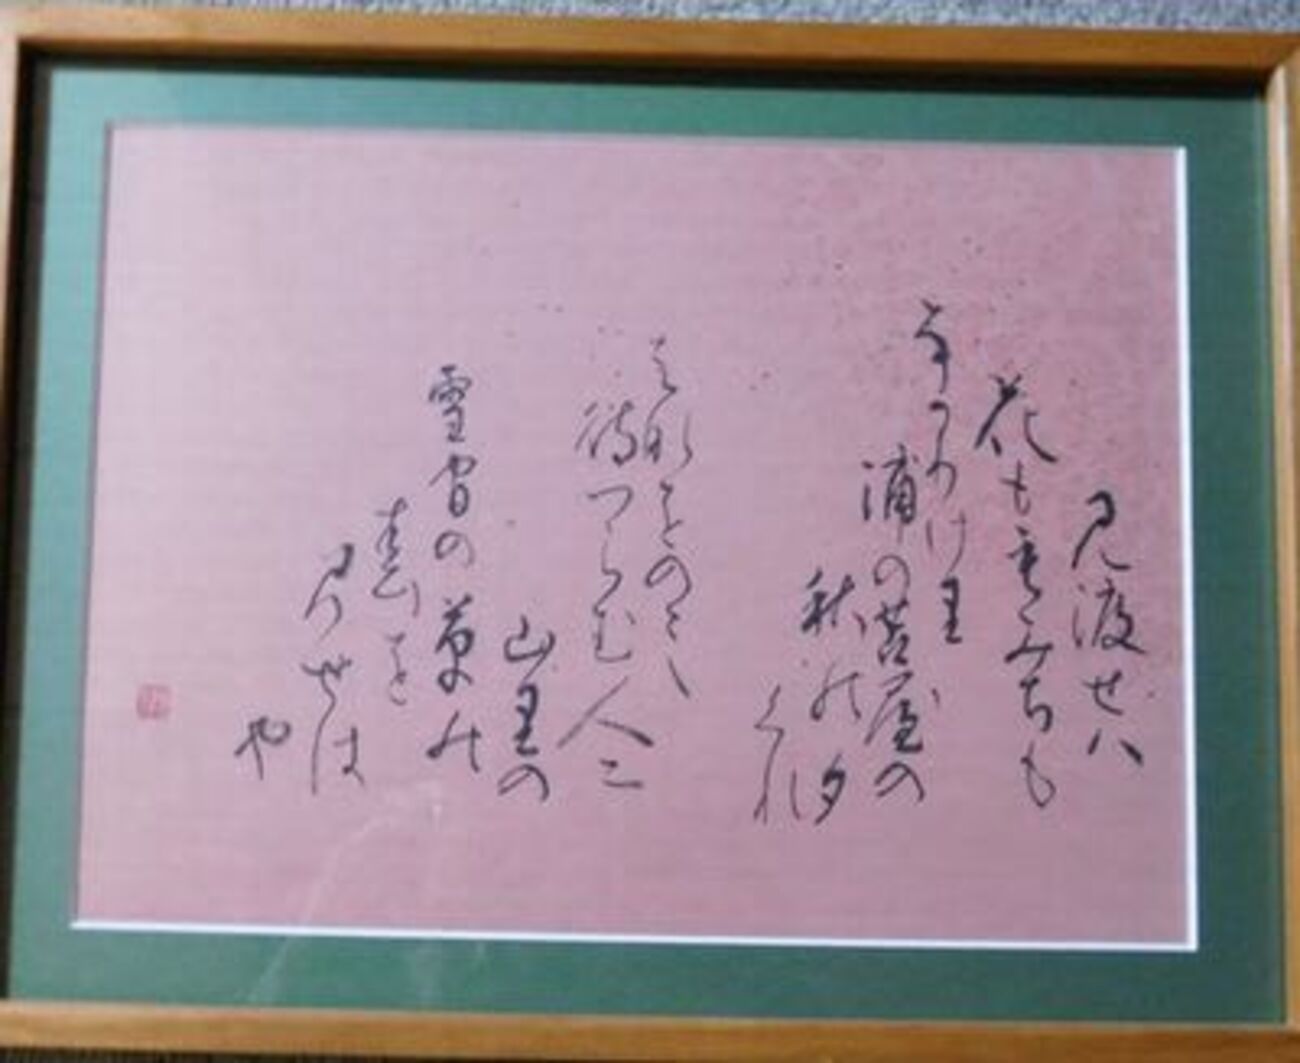 見渡せハ
花も毛みちも
なかりけ里
浦の苫屋の
秋の夕
くれ
花をのミ
待つらむ人ニ
山里の
雪間の草の
春を
見せは
や